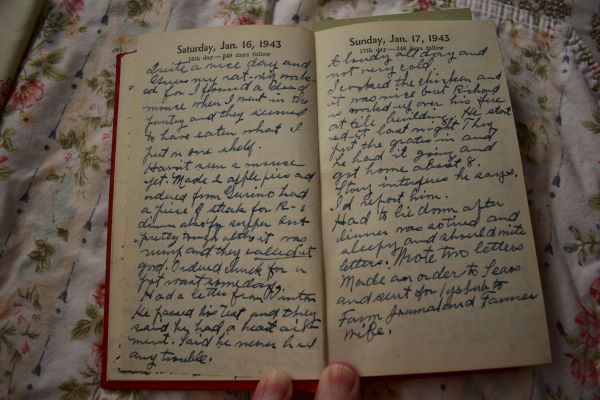 Saturday, Jan. 16, 1943
16th day—349 days follow
Quite a nice day and
Guess my rat mix work-
ed for I found a dead
mouse when I went in the
pantry and they seemed
to have eaten what I
put on one shelf.
Havn't seen a mouse
yet. Made 2 apple pies and
ordered from had
a piece of steak for R-s
dinner also for supper but
pretty tough altho it was
rump and they called it
good. Ordered chuck for a
pot roast someday.
Had a letter from
He passed his test and they
said he had a heart ailt
ment. Said he never had
any trouble.
Sunday, Jan. 17, 1943
17th day—348 days follow
Cloudy all day and
not very cold.
I cooked the chicken and
it was nice but Richard
is worked up over his fire
at tile building. He start
ed it last night. They
put the grates in and
he had it going and
got home about 8.
Story interferes he says,
I'd report him.
Had to lie down after
dinner was so tired and
sleepy and should write
letters. Wrote two letters
Made an order to Sears
and sent for 1 yr sub to
Farm Journal and Farmer
Wife.